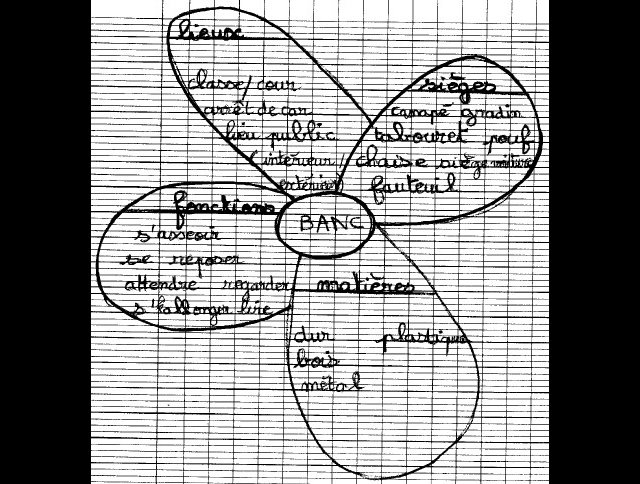 lieux
classe/cour
arrêt de car
lieu public
(intérieur/
extérieur)
sièges
canapé gradin
tabouret pouf
chaise siège voiture
fauteuil
BANC
fonctions
s'asseoir
se reposer
attendre regarder
s'allonger lire
matières
dur plastique
bois
métal